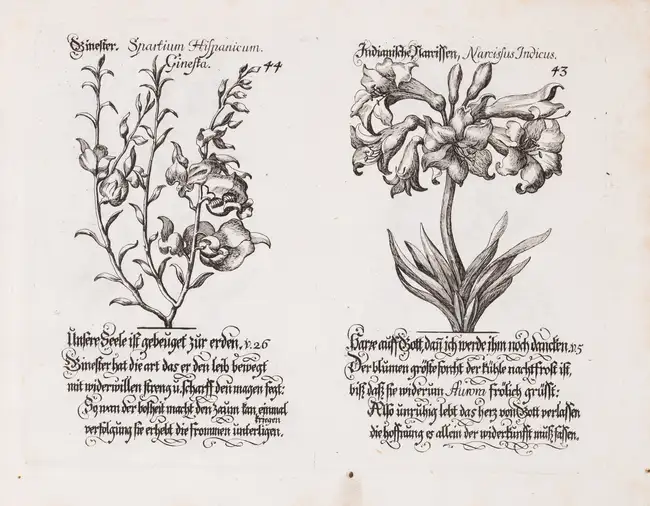 Ginester. Spartium Hispanicum.
Ginesta.
44
Unsere Seele ist gebeuget zur erden. v. 26
Ginester hat die art das er den leib bewegt
mit widerwillen streng u. scharff den magen fegt:
So wan der bosheit macht den zaum kan einmal
kriegen
verfolgung sie erhebt die frommen unterligen.
Indianische Narcissen, Narcissus Indicus.
43
Harre auff Gott, dan ich werde ihm noch dancken. v. 5
Der blumen gröste forcht der kühle nacht frost ist,
biß daß sie widerum Aurora frölich grüsst:
Also unrühig lebt das herz von Gott verlassen
die hoffnung es allein der widerkunfft muß fassen.